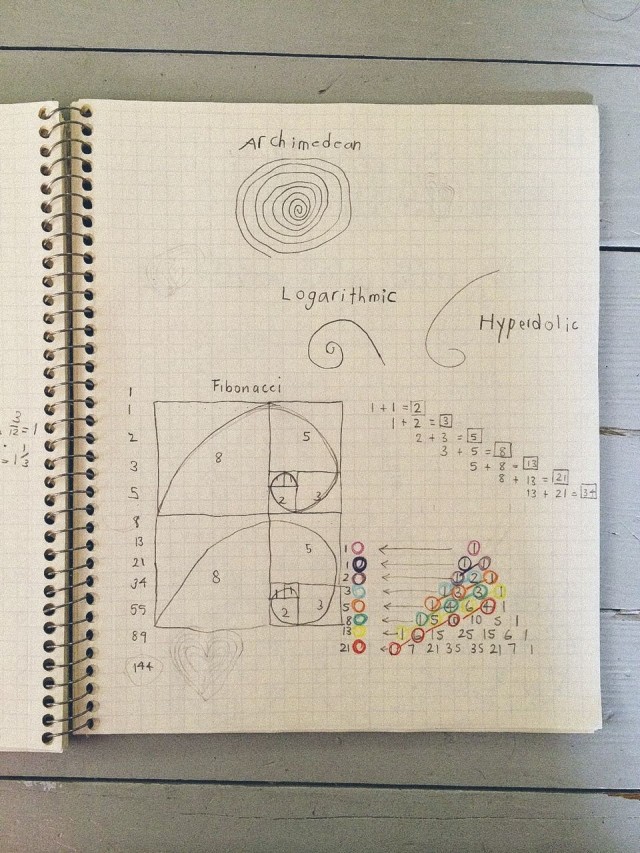 Archimedean
Logarithmic
Hyperdolic
Fibonacci
1
1
2
3
5
8
13
21
34
55
89
144
8
5
2
3
8
5
2
3
1 + 1 = 2
1 + 2 = 3
2 + 3 = 5
3 + 5 = 8
5 + 8 = 13
8 + 13 = 21
13 + 21 = 34
1 1
1 1 1
2 1 2 1
3 1 3 3 1
5 1 4 6 4 1
8 1 5 10 5 1
13 1 6 15 25 15 6 1
21 7 21 35 35 21 7 1